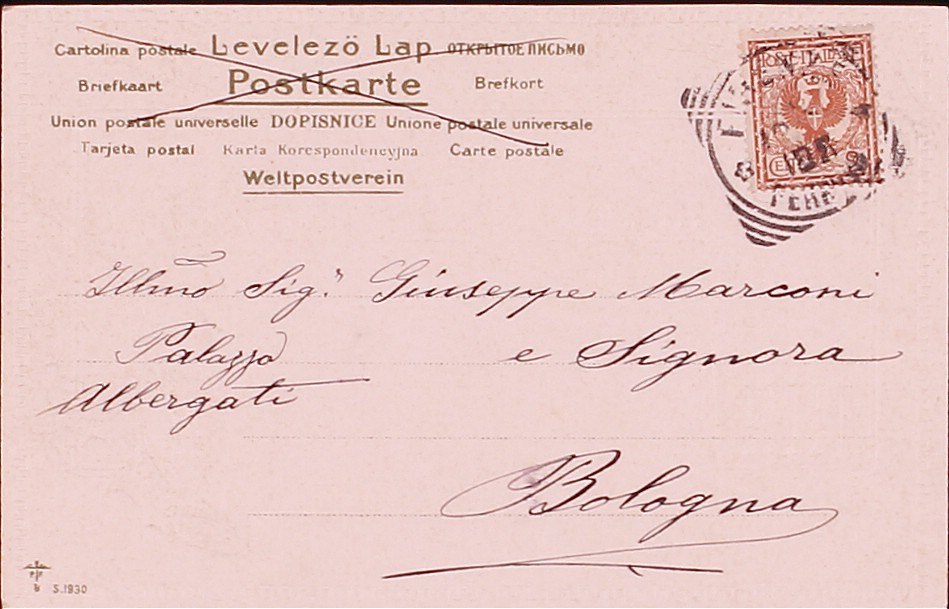 Cartolina postale Levelező Lap ОТКРЫТОЕ ПИСЬМО
Briefkaart Postkarte Brefkort
Union postale universelle DOPISNICE Unione postale universale
Tarjeta postal Karta Korespondencyjna Carte postale
Weltpostverein
POSTE ITALIANE
Illmo Sigr Giuseppe Marconi
Palazzo e Signora
Albergati
Bologna
S.1930